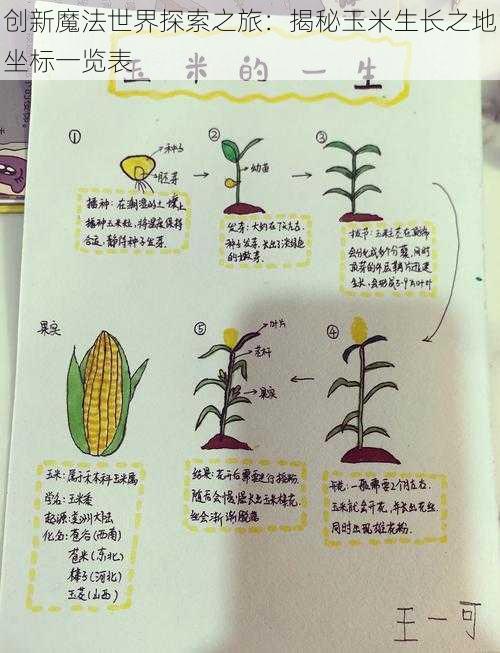 创新魔法世界探索之旅：揭秘玉米生长之地
坐标一览表
玉米的一生
①
种子
胚芽
播种：在潮湿的土壤上
播种玉米粒，将温度保持
合适，静待种子发芽。
②
幼苗
发芽：大约在7天左右，
种子发芽，长出浅绿色
的嫩芽。
③
拔节：玉米茎在顶端
会分化成多个分蘖，同时
生长，会形成5-9片叶叶
④
一般需要2个月左右，
玉米就会开花，并长出花丝，
同时出现雄花粉。
⑤
叶片
茎杆
果实
结果：花开后需要进行授粉，
随后会慢慢长出玉米棒，花
丝会渐渐脱落
果实
玉米：属于禾本科玉米属
学名：玉米黍
起源：美洲大陆
化名：苞谷（西南）
苞米（东北）
棒子（河北）
玉茭（山西）
王一可